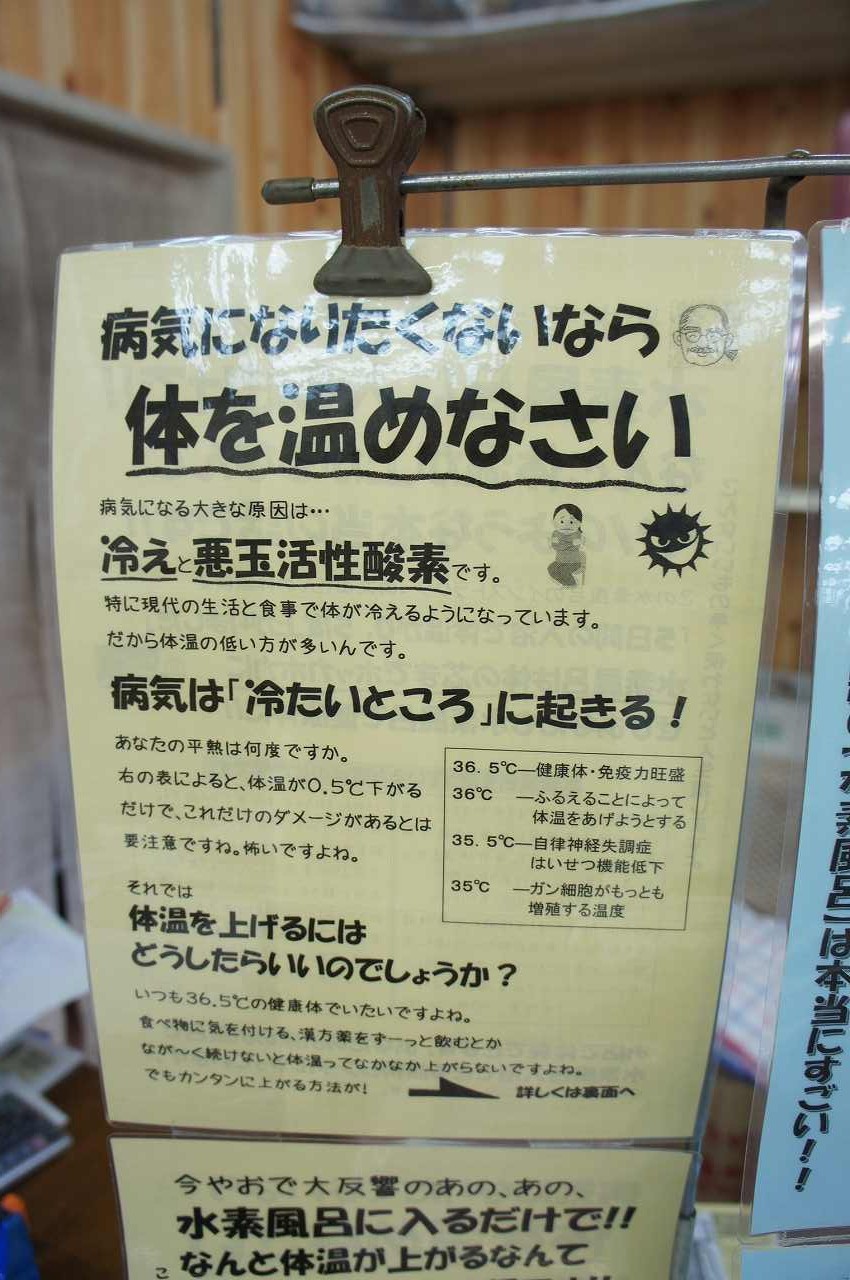 病気になりたくないなら
体を温めなさい
病気になる大きな原因は…
冷えと悪玉活性酸素です。
特に現代の生活と食事で体が冷えるようになっています。
だから体温の低い方が多いんです。
病気は「冷たいところ」に起きる！
あなたの平熱は何度ですか。
右の表によると、体温が0.5℃下がる
だけで、これだけのダメージがあるとは
要注意ですね。怖いですよね。
36.5℃―健康体・免疫力旺盛
36℃　―ふるえることによって
体温をあげようとする
35.5℃―自律神経失調症
はいせつ機能低下
35℃　―ガン細胞がもっとも
増殖する温度
それでは
体温を上げるには
どうしたらいいのでしょうか？
いつも36.5℃の健康体でいたいですよね。
食べ物に気を付ける、漢方薬をずーっと飲むとか
なが〜く続けないと体温ってなかなか上がらないですよね。
でもカンタンに上がる方法が！
詳しくは裏面へ
今やおで大反響のあの、あの、
水素風呂に入るだけで!!
なんと体温が上がるなんて
こ
素風呂」は本当にすごい！！